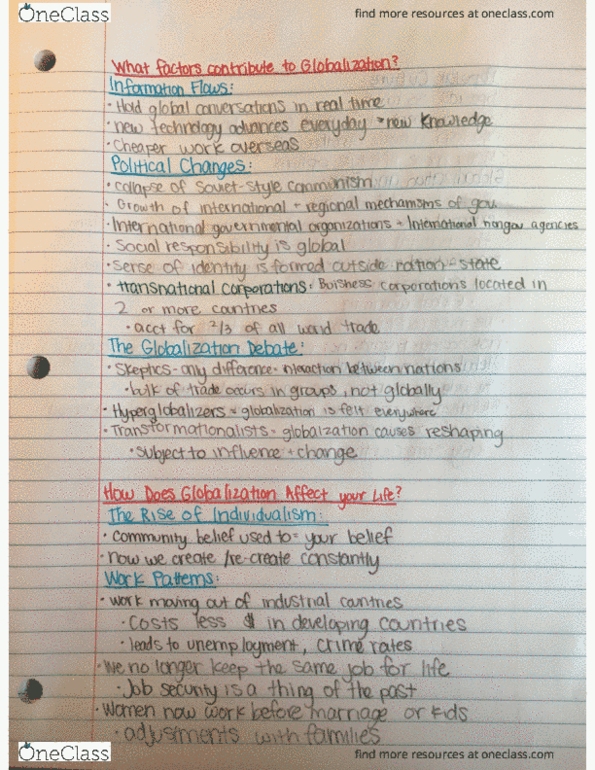 OneClass
find more resources at oneclass.com
What factors contribute to Globalization?
Information Flows:
• Hold global conversations in real time
• new technology advances everyday → new knowledge
• Cheaper work overseas
Political Changes:
• collapse of Soviet-style communism
• Growth of international + regional mechamsms of gov.
• International governmental organizations + International nongov agencies
• Social responsibility is global
• Sense of identity is formed outside nation-state
• transnational corporations: Buisness corporations located in
2 or more countries
• acct for 2/3 of all world trade
The Globalization Debate:
• Skeptics - only difference = interaction between nations
• bulk of trade occurs in groups, not globally
• Hyperglobalizers = globalization is felt everywhere
• Transformationalists = globalization causes reshaping
• Subject to influence + change
How Does Globalization Affect your Life?
The Rise of Individualism:
• Community belief used to = your belief
• now we create /re-create constantly
Work Patterns:
• work moving out of industrial countries
• Costs less $ in developing countries
• leads to unemployment, crime rates
• We no longer keep the same job for life
• Job security is a thing of the past
• Women now work before marriage or kids
• adjusments with families
OneClass
find more resources at oneclass.com